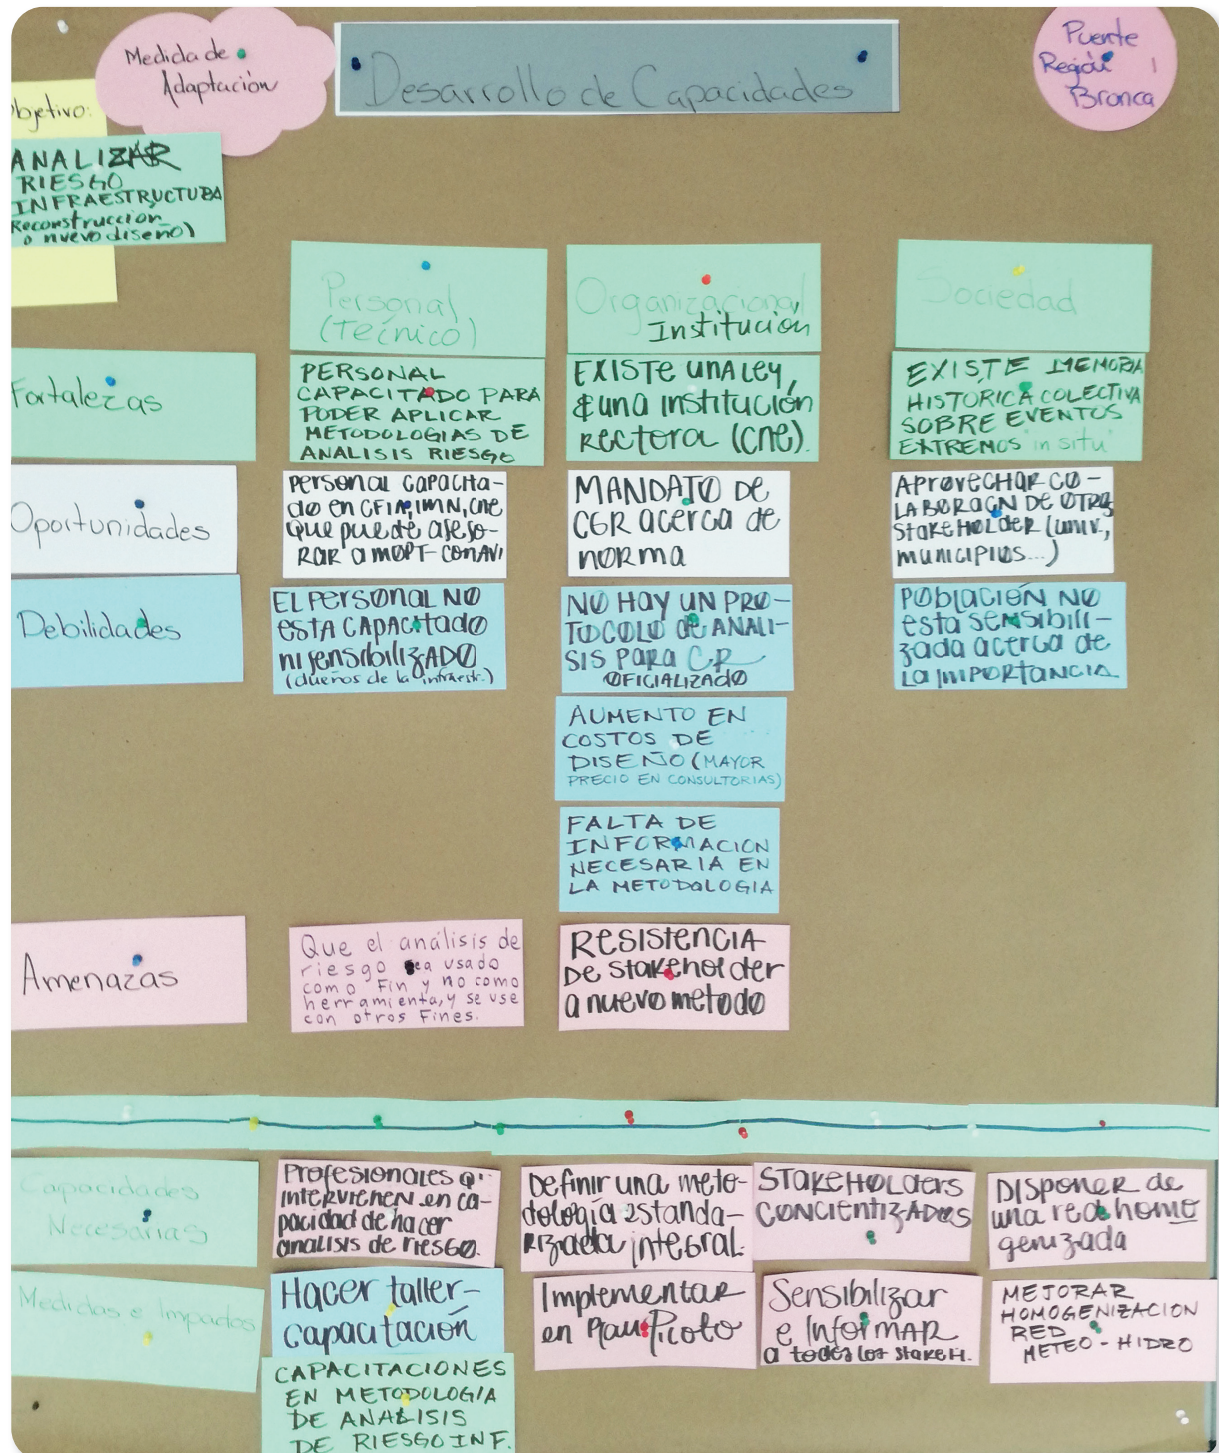 Medida de
Adaptación
Desarrollo de Capacidades
Puente
Región 1
Bronca
bjetivo:
ANALIZAR
RIESGO
INFRAESTRUCTURA
Reconstrucción
o nuevo diseño)
Personal
(Técnico)
Organizacional
Institución
Sociedad
Fortalezas
PERSONAL
CAPACITADO PARA
PODER APLICAR
METODOLOGIAS DE
ANALISIS RIESGO
EXISTE UNA LEY,
& una institución
rectora (CNE).
EXISTE MEMORIA
HISTÓRICA COLECTIVA
SOBRE EVENTOS
EXTREMOS "in situ"
Oportunidades
Personal capacita-
do en CFIA, IMN, CNE
que puede aseso-
rar a MOPT-CONAVI
MANDATO DE
CGR acerca de
norma
Aprovechar co-
laboracn de otrs
stakeholder (univ.,
municipios...)
Debilidades
El personal no
esta capacitado
ni sensibilizado
(dueños de la infraestr.)
No hay un pro-
tocolo de anali-
sis para CR
oficializado
Población no
esta sensibili-
zada acerca de
la importancia.
AUMENTO EN
COSTOS DE
DISEÑO (MAYOR
PRECIO EN CONSULTORIAS)
FALTA DE
INFORMACION
NECESARIA EN
LA METODOLOGIA
Amenazas
Que el análisis de
riesgo sea usado
como Fin y no como
herramienta, y se use
con otros Fines.
Resistencia
de stakeholder
a nuevo metodo
Capacidades
Necesarias
Profesionales q'
intervienen en ca-
pacidad de hacer
analisis de riesgo.
Definir una meto-
dología estanda-
rizada integral.
STAKEHOLDERS
CONCIENTIZADOS
Disponer de
una red homo
genizada
Medidas e Impactos
Hacer taller-
capacitación
Implementar
en Plan Piloto
Sensibilizar
e informar
a todos los stakeh.
MEJORAR
HOMOGENIZACION
RED
METEO-HIDRO
CAPACITACIONES
EN METODOLOGIA
DE ANALISIS
DE RIESGO INF.